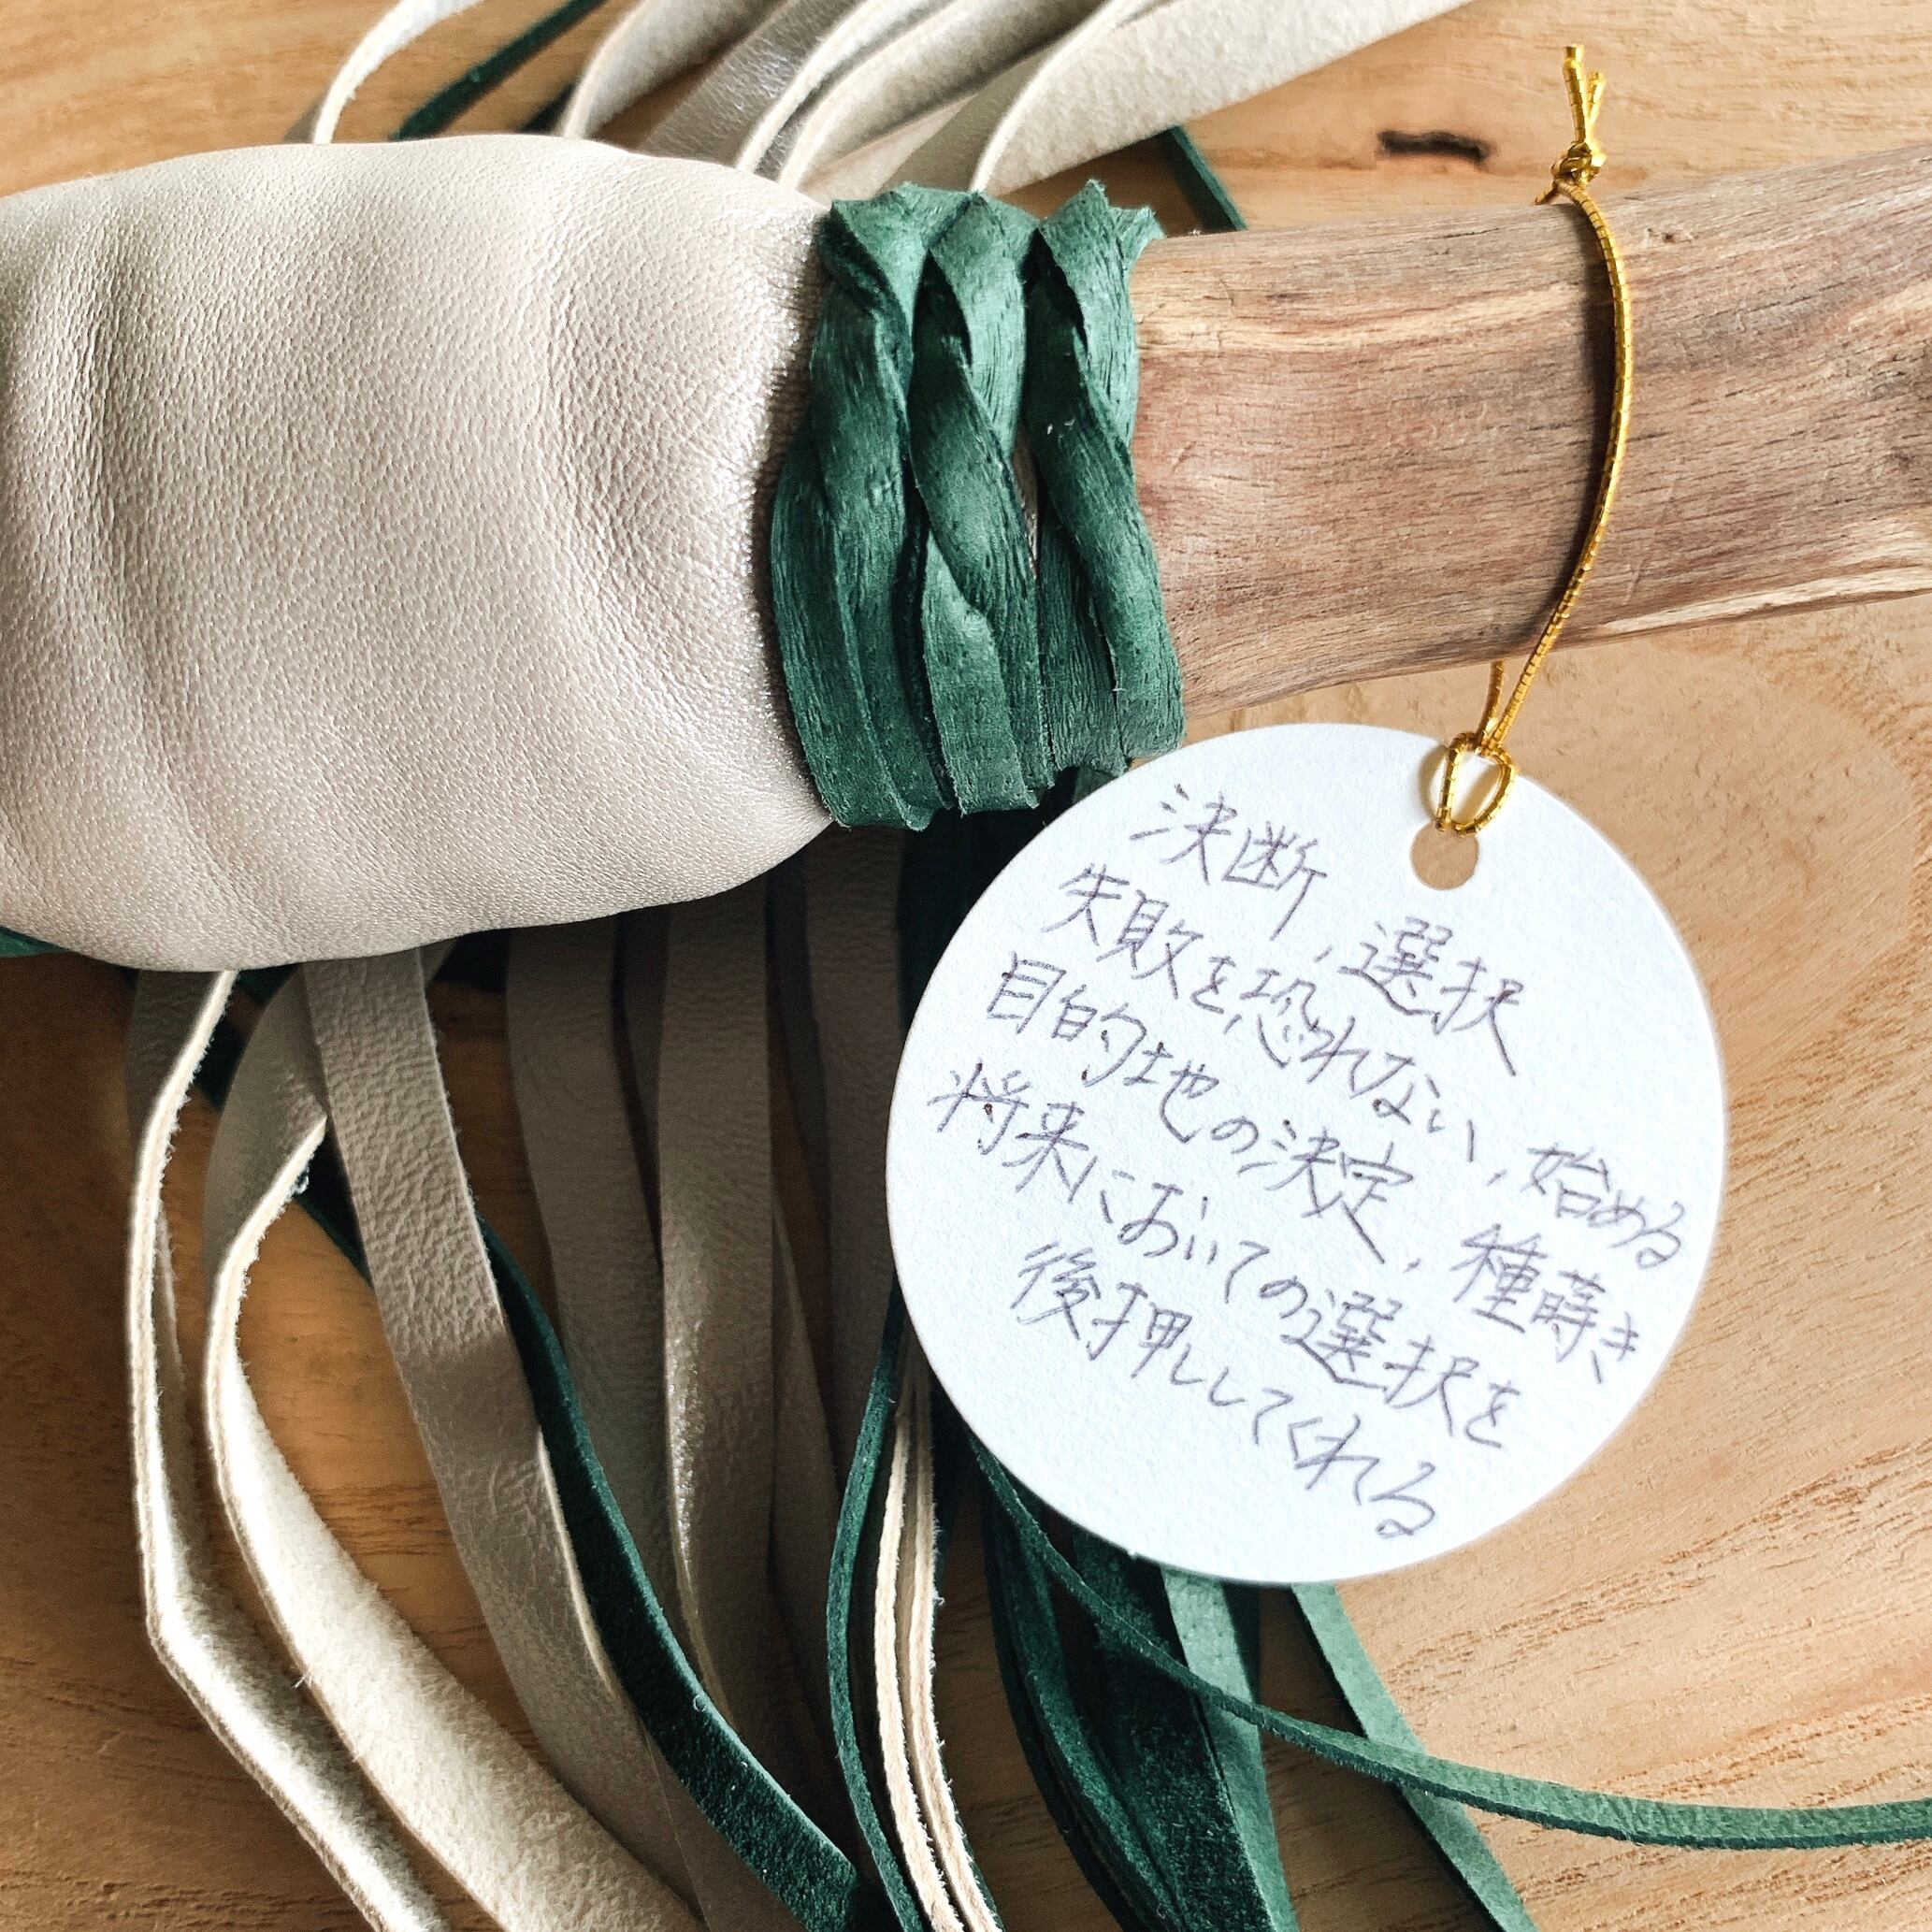 決断、選択
失敗を恐れない、始める
目的地の決定、種蒔き
将来においての選択を
後押ししてくれる